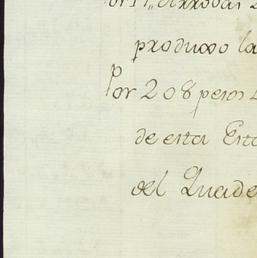 produxo la
Por 208 pesos
de esta Est
del Quade